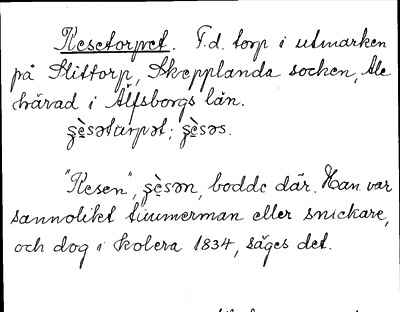 Kesetorpet. F.d. torp i utmarken
på Slittorp, Skepplanda socken, Ale
härad i Älfsborgs län.
ʂè̞sətårpət; ʂè̞səs.
"Kesen", ʂè̞sən, bodde där. Han var
sannolikt timmerman eller snickare,
och dog i kolera 1834, säges det.